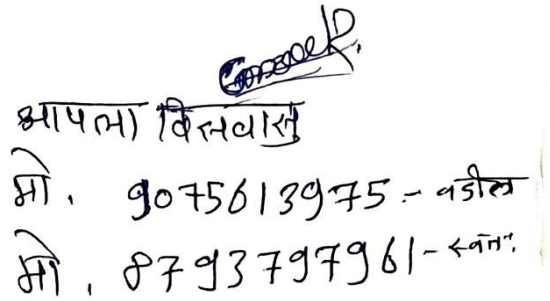 आपला विश्वासु
मो. 9075613975 - वडील
मो. 8793797961 - स्वतः